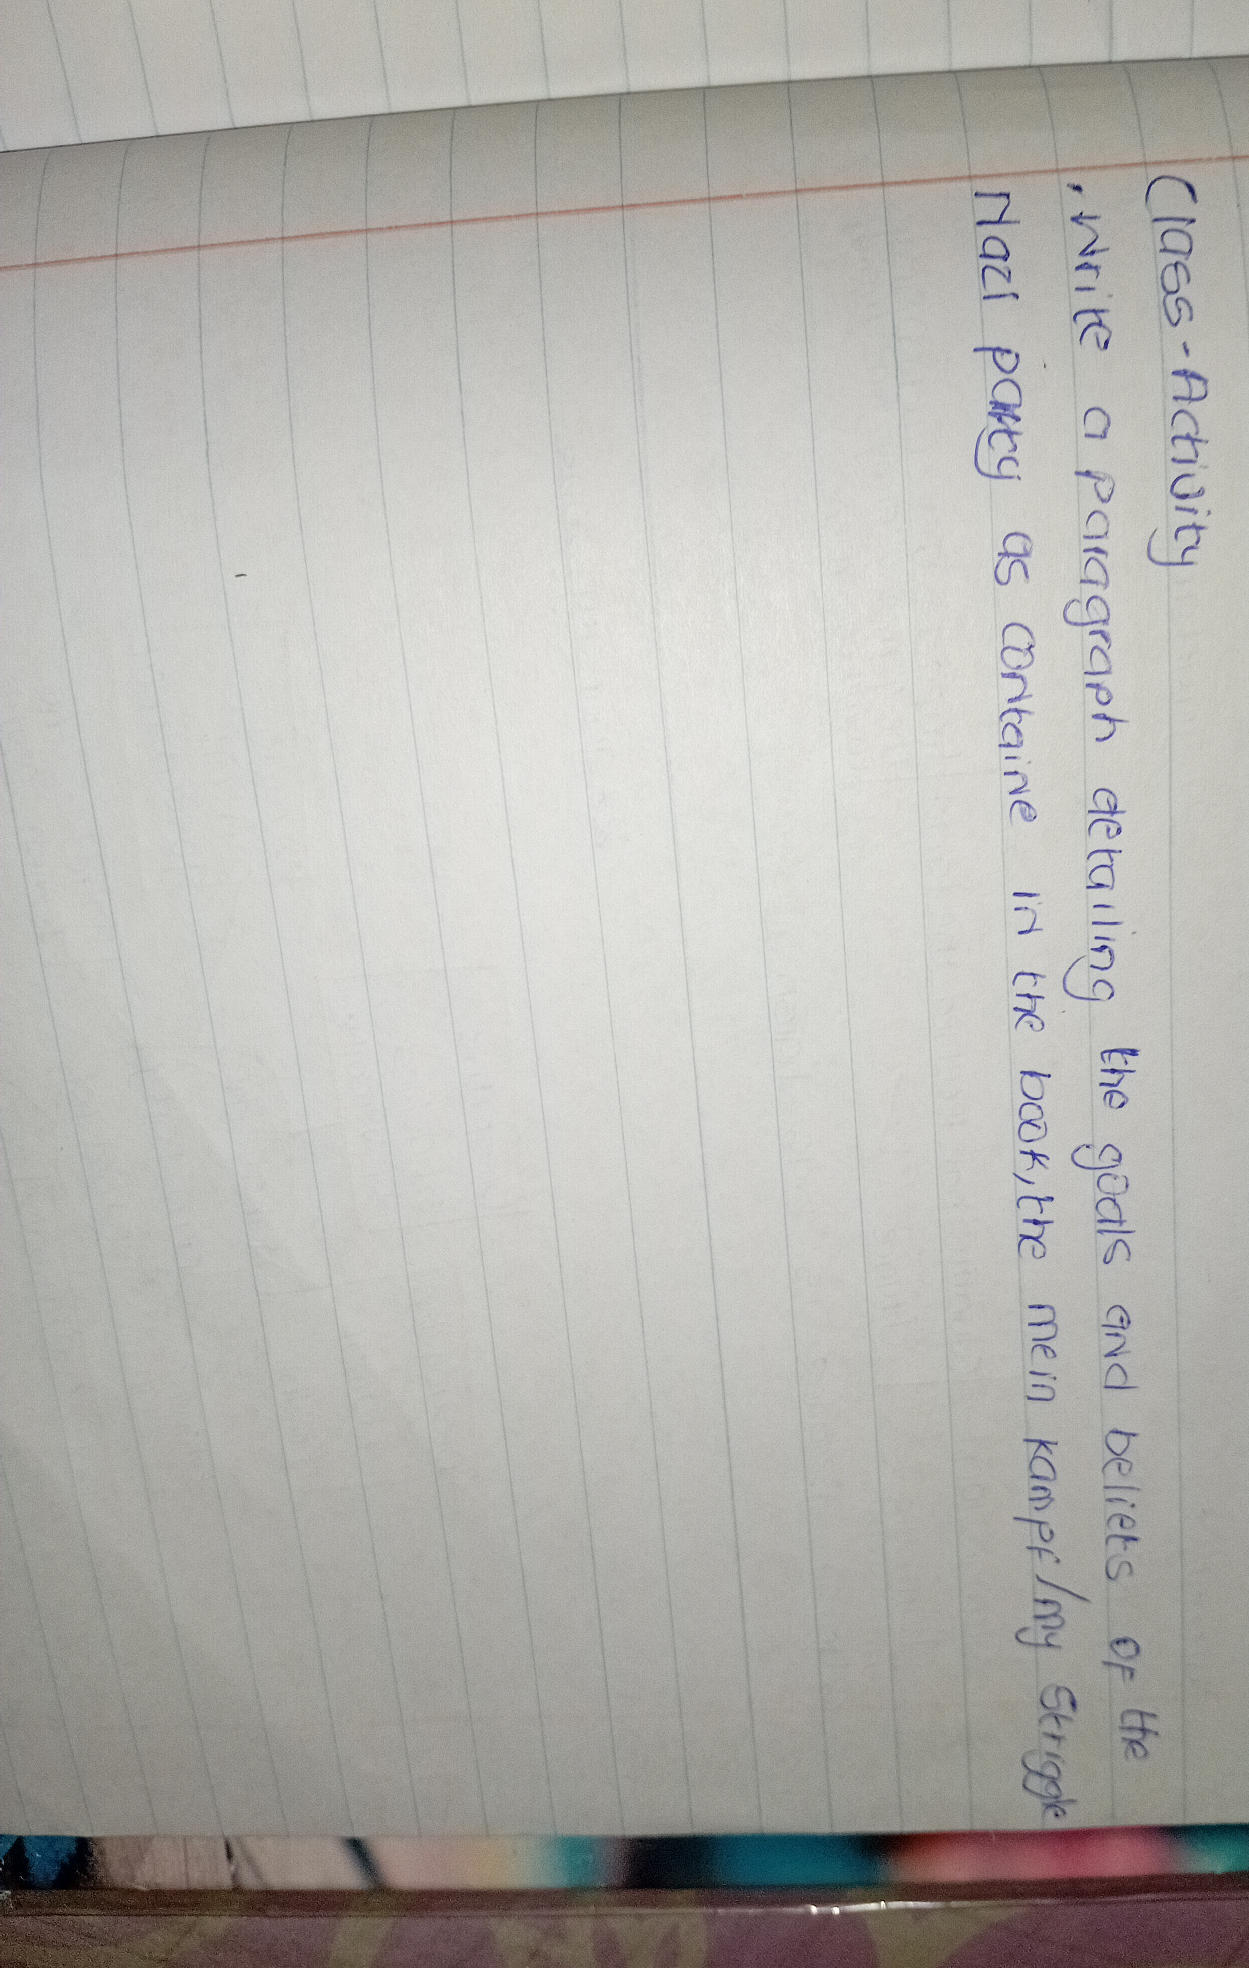 Class-Activity
. Write a paragraph detailing the goals and beliefs of the
Nazi party as containe in the book, the mein kampf/my Striggle